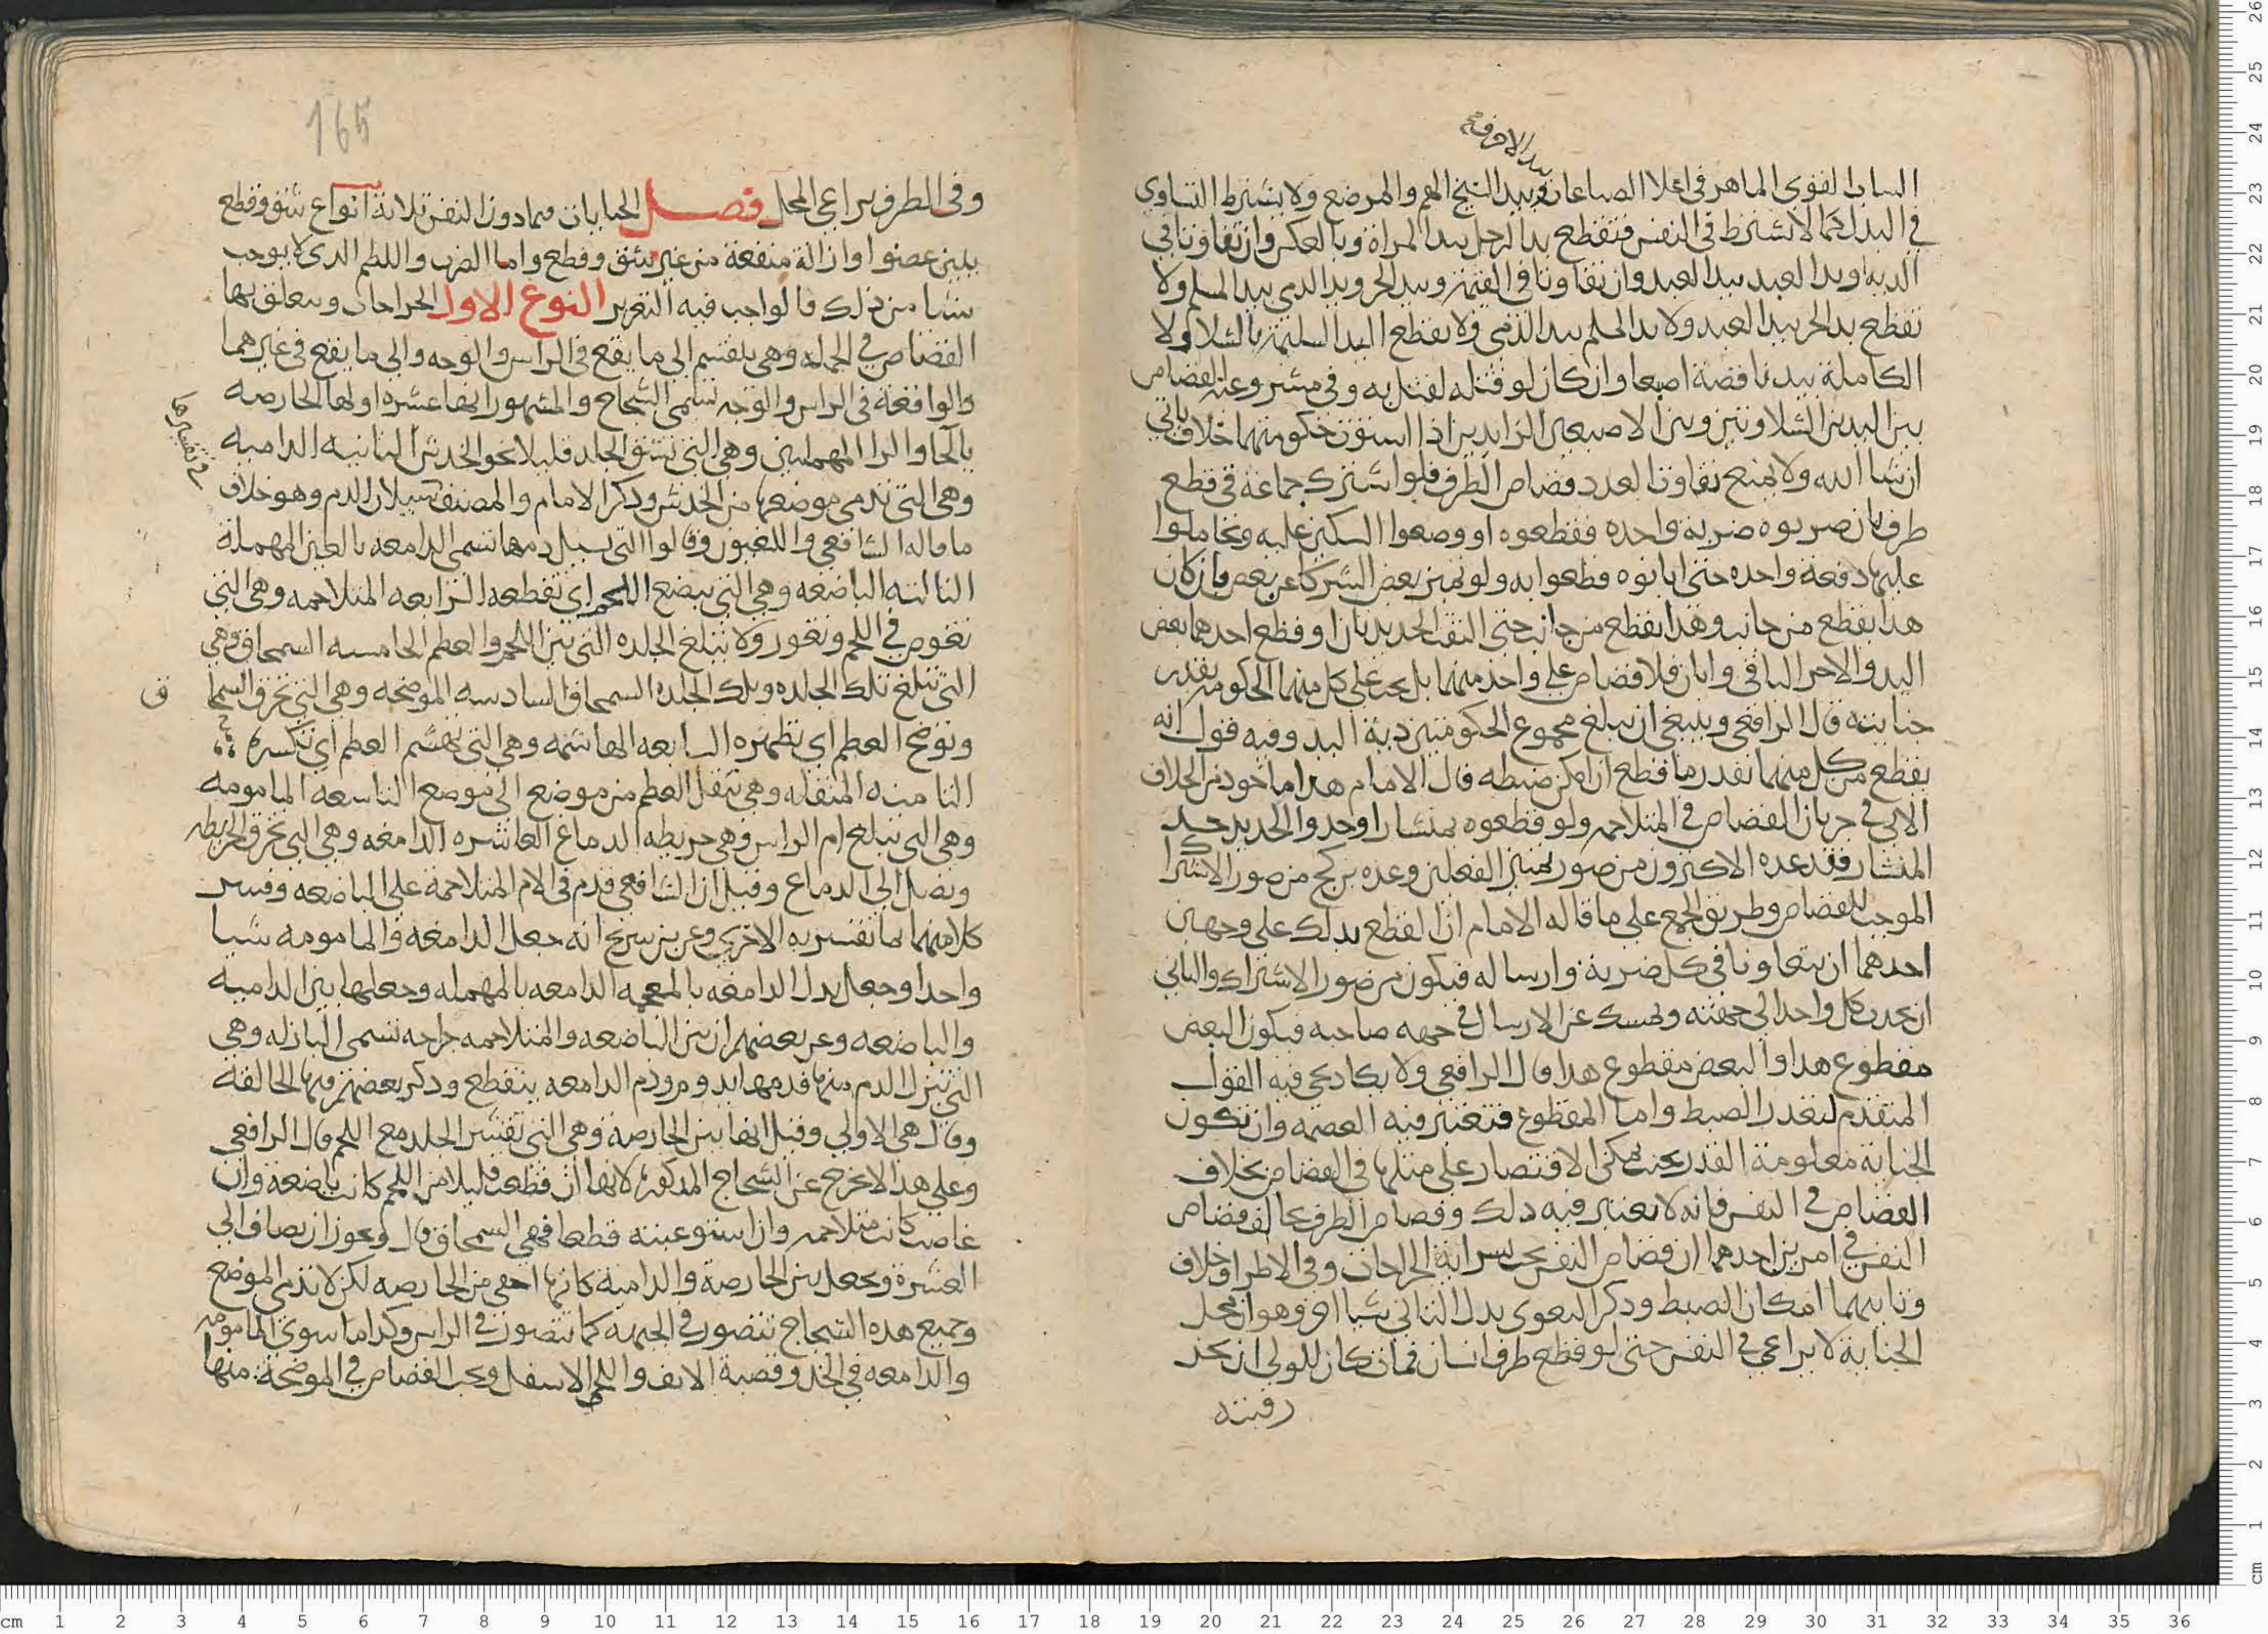 بيد الاخرق فـ
الشاب القوى الماهر فى اعلا الصناعات وبيد الشيخ الهم والمرضع ولا يشترط التساوى
فى البدل كما لا يشترط فى النفس فتقطع يد الرجل بيد المراة وبالعكس وان تفاوتا فى
الدية ويد العبد بيد العبد وان تفاوتا فى القيمة وبيد الحر ويد الذمي بيد المسلم ولا
تقطع يد الحر بيد العبد ولا يد المسلم بيد الذمي ولا يقطع اليد السليمة بالشلا ولا
الكاملة بيد ناقصة اصبعا وان كان لو قتله لقتل به وفى مشروعية القصاص
بين اليدين الشلاوتين وبين الاصبعين الزايدين اذا استوت حكومتهما خلاف ياتي
ان شا الله ولا يمنع تفاوت العدد قصاص الطرف فلو اشترك جماعة فى قطع
طرف بان ضربوه ضربة واحدة فقطعوه او وضعوا السكين عليه وتحاملوا
عليها دفعة واحدة حتى ابانوه قطعوا به ولو تميز بعض الشركا عن بعض بان كان
هذا يقطع من جانب وهذا يقطع من جانب حتى التقى الحديدتان او قطع احدهما بعض
اليد والاخر الباقي وابان فلا قصاص على واحد منهما بل يجب على كل منهما الحكومة بقدر
جنايته قال الرافعي وينبغي ان يبلغ مجموع الحكومتين دية اليد وفيه قول انه
يقطع من كل منهما بقدر ما قطع ان امكن ضبطه قال الامام هذا ماخوذ من الخلاف
الاتى فى جريان القصاص فى المتلاحمه ولو قطعوه بمنشار او جذوا الحديد جذ
المنشار فقد عده الاكثرون من صور تميز الفعلين وعده بن كج من صور الاشتراك
الموجب للقصاص وطريق الجمع على ما قاله الامام ان القطع بذلك على وجهين
احدهما ان يتعاونا فى كل ضربة وارساله فيكون من صور الاشتراك والثاني
ان يجذب كل واحد الى جهته ويمسك عن الارسال فى جهه صاحبه فيكون البعض
مقطوع هذا والبعض مقطوع هذا قال الرافعي ولا يكاد يجي فيه القول
المتقدم لتعذر الضبط واما المقطوع فتعتبر فيه العصمة وان تكون
الجناية معلومة القدر بحيث يمكن الاقتصار على مثلها فى القصاص بخلاف
القصاص فى النفس فانه لا يعتبر فيه ذلك وقصاص الطرف يخالف قصاص
النفس فى امرين احدهما ان قصاص النفس يجب بسراية الجراحات وفى الاطراف خلاف
وثانيهما امكان الضبط وذكر البغوى بدل الثاني شيا اخر وهو ان محل
الجناية لا يراعى فى النفس حتى لو قطع طرف انسان فمات كان للولي ان يحز
رقبته
165
وفى الطرف يراعى المحل فصل الجنايات فيما دون النفس ثلاثة انواع شق وقطع
يبين عضوا او ازالة منفعة من غير شق وقطع واما الضرب واللطم الذى لا يوجب
شيا من ذلك فالواجب فيه التعزير النوع الاول الجراحات ويتعلق بها
القصاص فى الجملة وهى ينقسم الى ما يقع فى الراس والوجه والى ما يقع فى غيرهما
والواقعة فى الراس والوجه تسمى الشجاج والمشهور انها عشرة اولها الحارصه
بالحا والرا المهملتين وهى التى تشق الجلد قليلا نحو الخدش الثانيه الداميه
وهى التى تدمى موضعها من الخدش وذكر الامام والمصنف سيلان الدم وهو خلاف
ما قاله الشافعي واللغويون وقالوا التى يسيل دمها تسمى الدامعه بالعين المهملة
الثالثه الباضعه وهى التى تبضع اللحم اى تقطعه الرابعه المتلاحمه وهى التى
تغوص فى اللحم وتغور ولا تبلغ الجلده التى بين اللحم والعظم الخامسه السمحاق وهى
التى تبلغ تلك الجلده وتلك الجلده السمحاق السادسه الموضحه وهى التى تخرق السمحا
ق
وتوضح العظم اى تظهره السابعه الهاشمه وهى التى تهشم العظم اى تكسره
الثامنه المنقله وهى تنقل العظم من موضع الى موضع التاسعه المامومه
وهى التى تبلغ ام الراس وهى خريطه الدماغ العاشره الدامغه وهى التى تخرق الخريطه
وتصل الى الدماغ وقيل ان الشافعي قدم فى الام المتلاحمة على الباضعه وفسر
كلا منهما بما تفسر به الاخرى وعن بن سريج انه جعل الدامغه والمامومه شيا
واحدا وجعل بدل الدامغه بالمعجمه الدامعه بالمهمله وجعلها بين الداميه
والباضعه وعن بعضهم ان بين الباضعه والمتلاحمه جراحه تسمى البازله وهى
التى تنزل الدم منها فدمها يدوم ودم الدامعه ينقطع وذكر بعضهم فيها الجالفه
وقال هى الاولى وقيل انها بين الحارصة وهى التى تقشر الجلد مع اللحم قال الرافعي
وعلى هذا لا تخرج عن الشجاج المذكورة لانها ان قطعت قليلا من اللحم كانت باضعة وان
غاصت كانت متلاحمه وان استوعبته قطعا فهى السمحاق قال ويجوز ان يضاف الى
العشرة وتجعل بين الحارصة والدامية كانها اخفى من الحارصه لكن لا تدمى الموضع
وجميع هذه الشجاج تتصور فى الجبهه كما تتصور فى الراس وكذا ما سوى المامومه
والدامغه فى الخد وقصبة الانف واللحى الاسفل ويجب القصاص فى الموضحة منها